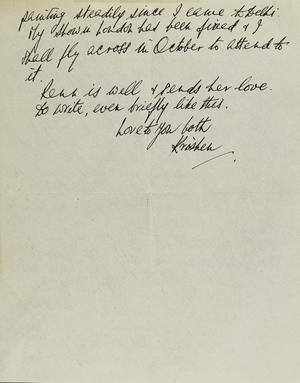 painting steadily since I came to Delhi.
My show in London has been fixed & I
shall fly across in October to attend to
it.
Renu is well & sends her love.
Do write, even briefly like this.
Love to you both
Krishen